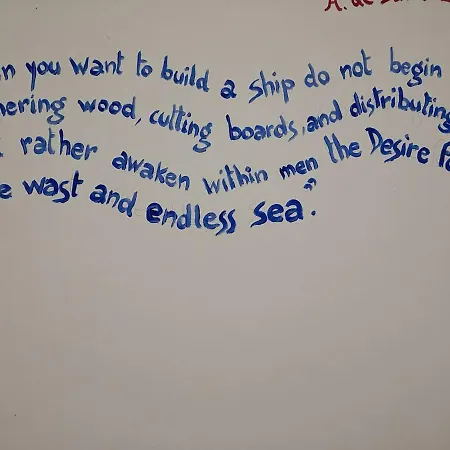 A. de
n you want to build a ship do not begin
hering wood, cutting boards, and distributing
rather awaken within men the Desire fo
e wast and endless sea."